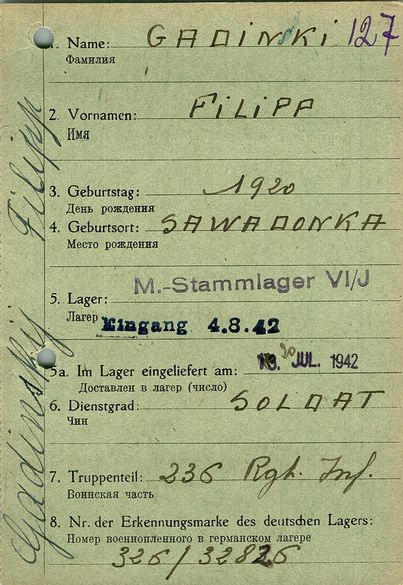 127
1. Name: GADINSKI
Фамилия
2. Vornamen: FILIPP
Имя
3. Geburtstag: 1920
День рождения
4. Geburtsort: SAWADONKA
Место рождения
M.-Stammlager VI/J
5. Lager:
Лагер Eingang 4.8.42
5a. Im Lager eingeliefert am: 20 JUL. 1942
Доставлен в лагер (число)
6. Dienstgrad: SOLDAT
Чин
7. Truppenteil: 236 Rgt. Inf.
Воинская часть
8. Nr. der Erkennungsmarke des deutschen Lagers:
Номер военнопленного в германском лагере
326/32826
Gadinskij Filipp